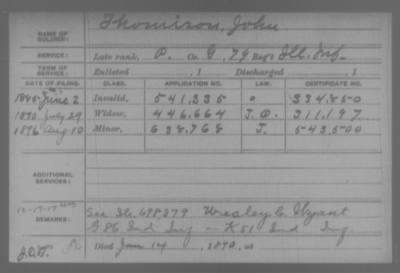 NAME OF SOLDIER: Thomison, John
SERVICE: Late rank, P. Co. G, 79 Reg't Ill. Inf.
TERM OF SERVICE: Enlisted , 1 Discharged , 1
DATE OF FILING. CLASS. APPLICATION NO. LAW. CERTIFICATE NO.
1885 June 2 Invalid, 541,335 334,850
1890 July 29 Widow, 446,664 311,197
1896 Aug 10 Minor, 638,768 J. 543,500
ADDITIONAL SERVICES:
12-17-17
REMARKS: See 698279 Wesley C. Wyant
G 86 Ind Inf - K 51 Ind Inf
Died Jan 14, 1890, at